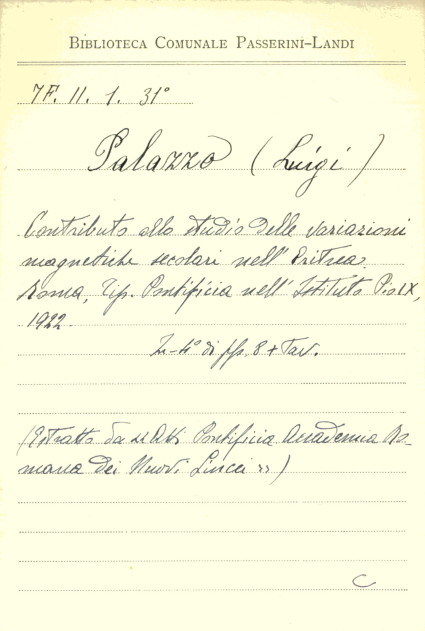 BIBLIOTECA COMUNALE PASSERINI-LANDI
7F. II. 1. 31°
Palazzo (Luigi)
Contributo allo studio delle variazioni
magnetiche secolari nell'Eritrea.
Roma, Tip. Pontificia nell'Istituto Pio IX,
1922.
In-4° di pp. 8 + Tav.
(Estratto da "Atti Pontificia Accademia Ro-
mana dei Nuovi Lincei")
C